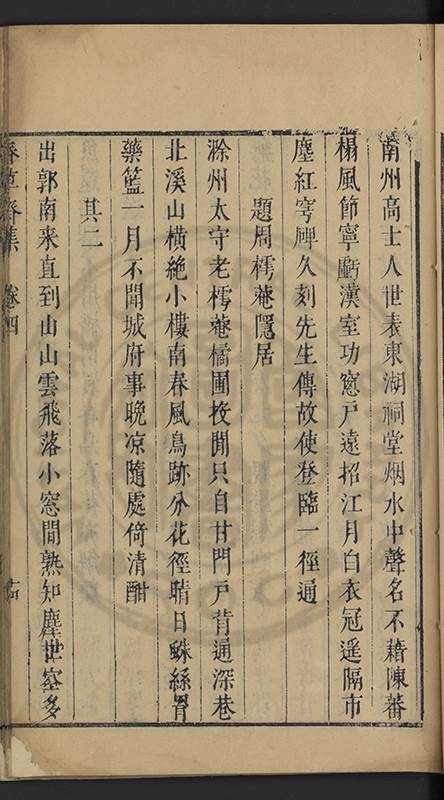 南州高士人世表東湖祠堂烟水中聲名不藉陳蕃
榻風節寧虧漢室功窓戶遠招江月白衣冠遥隔市
塵紅穹碑久刻先生傳故使登臨一徑通
題周樗菴隱居
滁州太守老樗菴橘圃投閒只自甘門戶背通深巷
北溪山橫絶小樓南春風鳥跡分花徑晴日蛛絲罥
藥籃一月不聞城府事晚凉隨處倚清酣
其二
出郭南来直到山山雲飛落小窓閒熟知塵世塗多
春草齋集 卷四